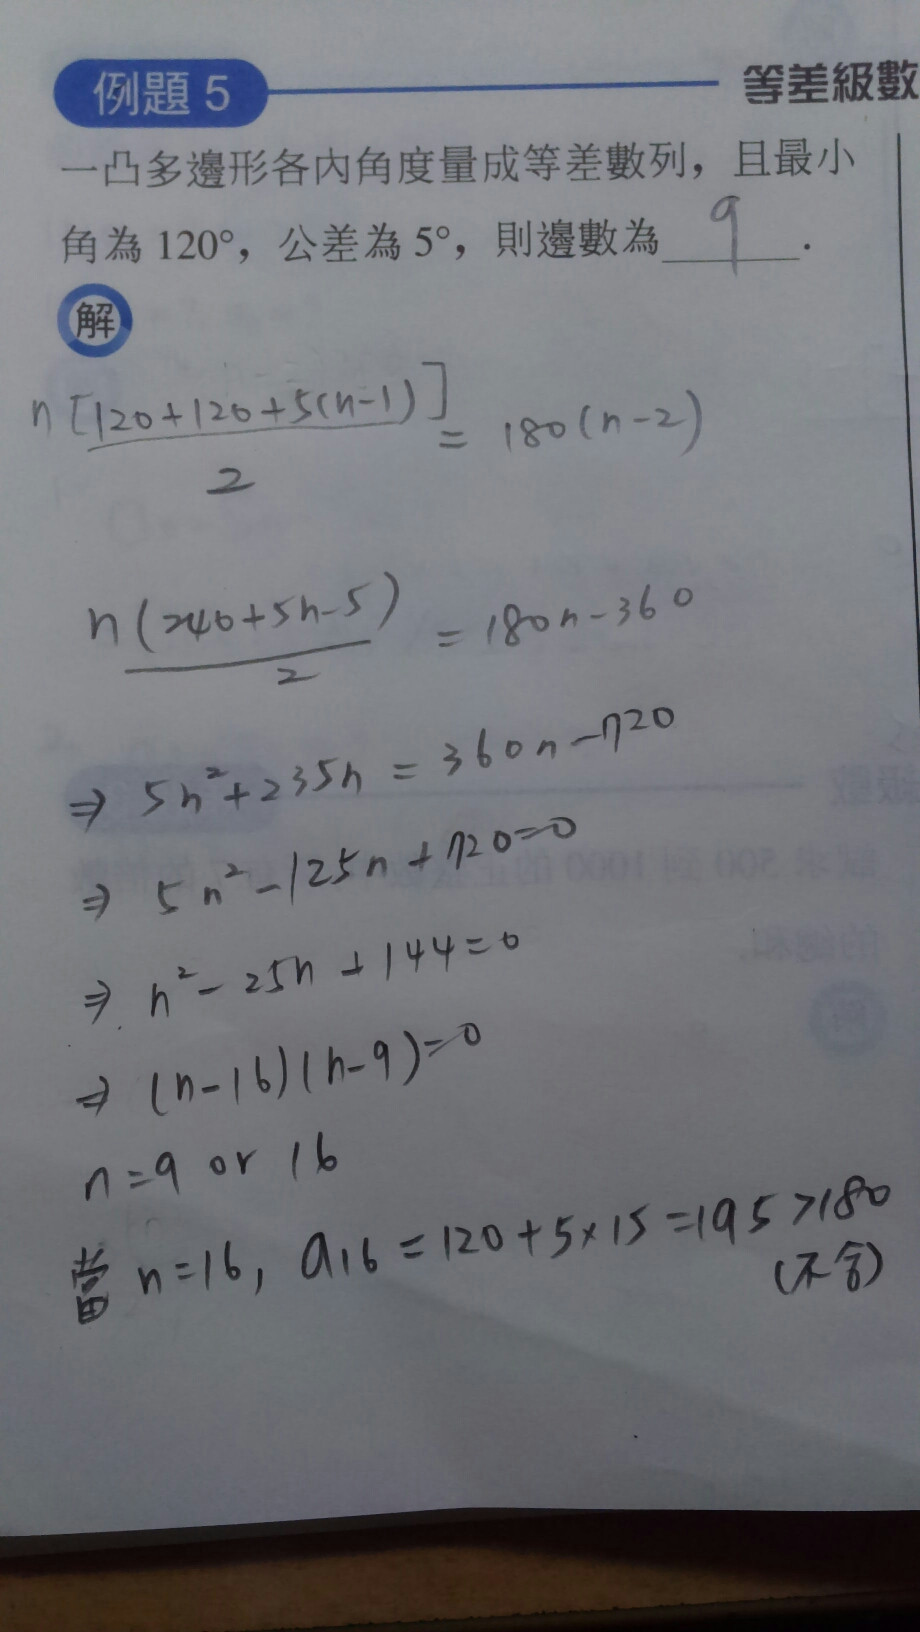 例題 5 等差級數
一凸多邊形各內角度量成等差數列，且最小
角為 120°，公差為 5°，則邊數為 9 .
解
n[120+120+5(n-1)]/2 = 180(n-2)
n(240+5n-5)/2 = 180n-360
⇒ 5n²+235n = 360n-720
⇒ 5n²-125n+720=0
⇒ n²-25n+144=0
⇒ (n-16)(n-9)=0
n=9 or 16
當 n=16, a16 = 120+5×15=195>180
(不合)